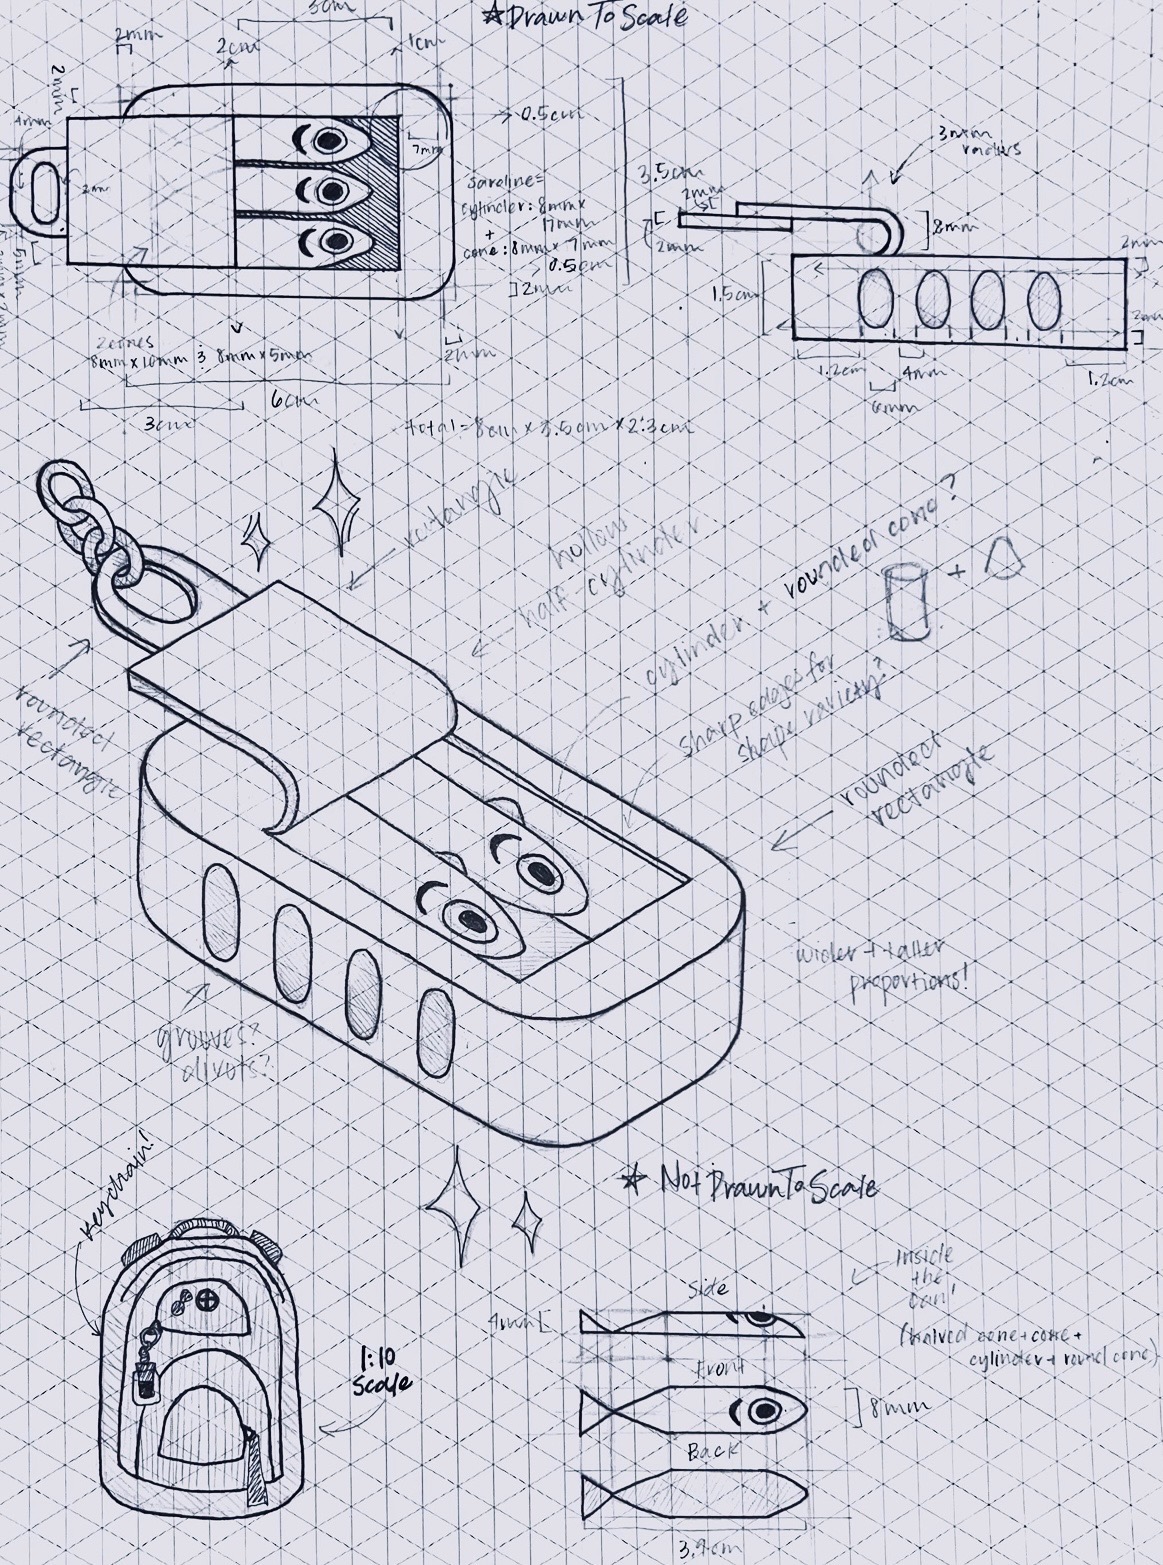 ☆DrawnToScale
3cm
2mm
2cm
1cm
2mm
4mm
2mm
7mm
0.5cm
sardine=
cylinder: 8mm x
17mm
+
cone: 8mm x 7mm
0.5cm
2mm
2mm
2cones
8mm x 10mm & 8mm x 5mm
6cm
3cm
total = 8cm x 3.5cm x 2.3cm
3mm
radius
3.5cm
2mm
2mm
8mm
2mm
1.5cm
2mm
1.2cm
4mm
1.2cm
6mm
rectangle
hollow
half-cylinder
cylinder + rounded cone?
+
sharp edges for
shape variety?
rounded
rectangle
rounded
rectangle
wider + taller
proportions!
grooves?
divots?
keychain!
1:10
scale
☆ NotDrawnToScale
inside
the
can!
(halved cone + cone +
cylinder + round cone)
Side
4mm
Front
8mm
Back
3.9cm